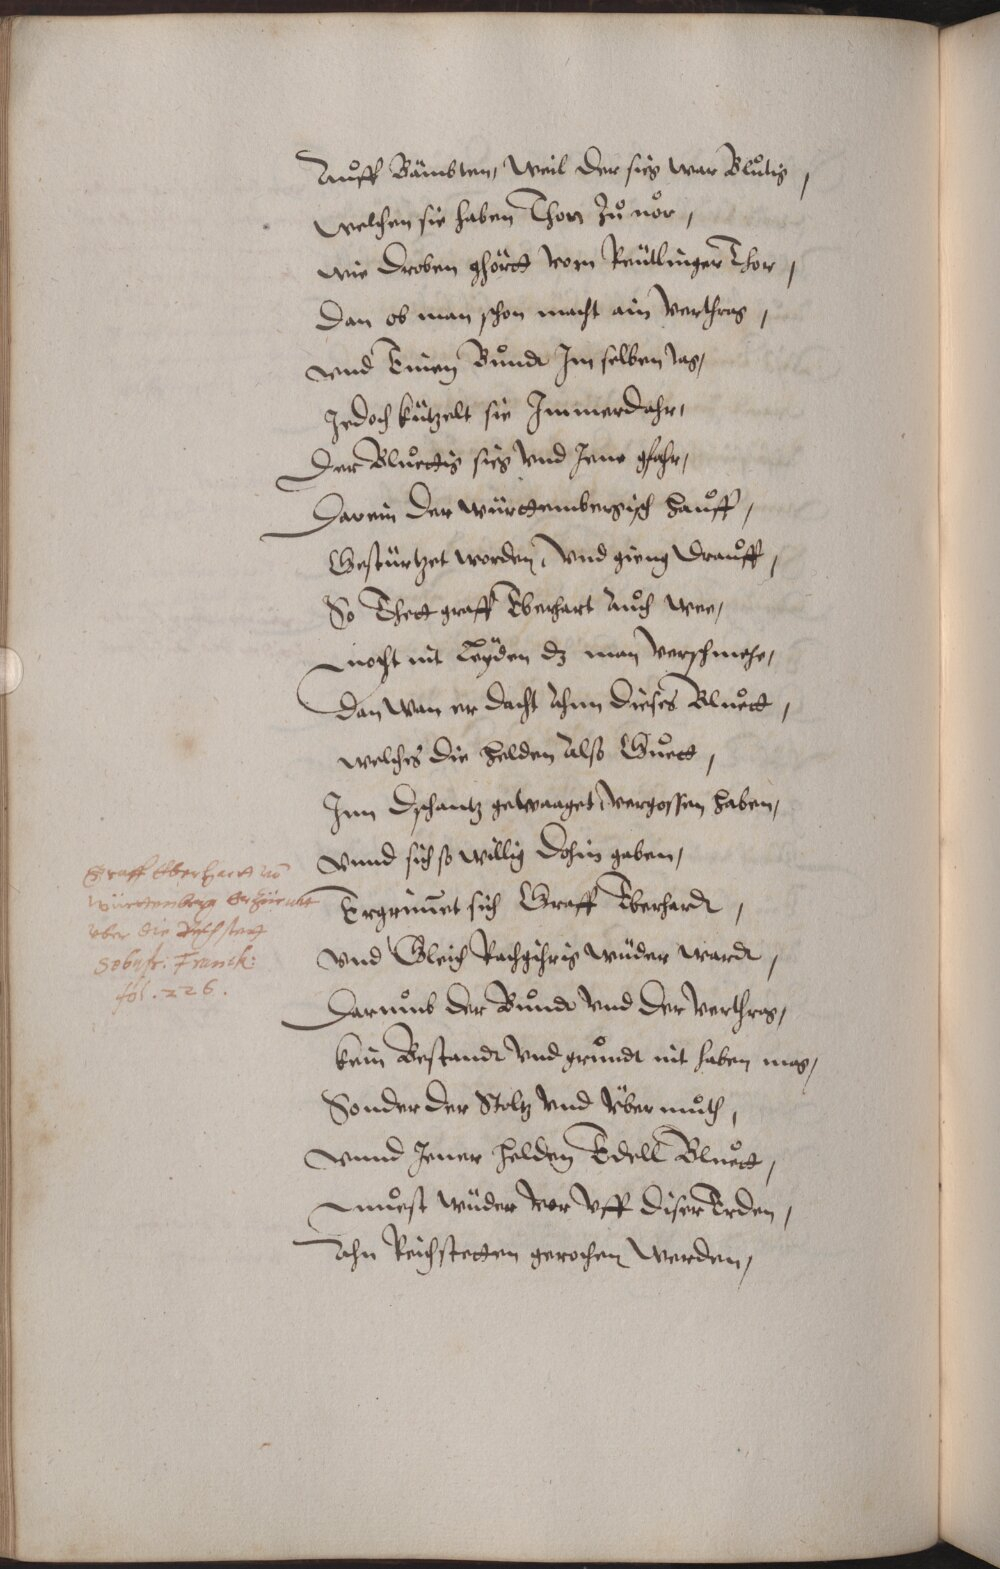 Auff Bämbten, Weil der sieg war Bluͦtig,
welchen sie haben Thon Zuͦ nor,
wie droben ghörtt vom Reüttlinger Thor,
Dan ob man schon macht ain Verthrag,
vnd Einen Buͦndt Im selben tag,
Jedoch kützelt sie Immerdahr,
Der Bluͦettig sieg vnd Jene gfahr,
Darein der württembergisch hauff,
Gestürtzet worden, vnd gieng drauff,
So Thett graff Eberhart Auch wee,
mocht nit Leyden dz man Verschmehe,
Dan Wan er dacht Ahnn dieses Bluͦett,
welches die helden Also Guͦett,
Inn dschantz gewaaget, vergossen haben,
vnnd sich so willig dohin gaben,
Ergrimmet sich Graff Eberhardt,
vnd Gleich Rachgihrig wüder wardt,
Darumb der Buͦndt vnd der Verthrag,
kein Bestandt vnd gruͦndt nit haben mag,
Sonder der Stoltz vnd Über muͦth,
vnnd Jener helden Edell Bluͦett,
muͦest wüder vor Vff diser Erden,
Ahn Reichstetten gerochen werden,
Graff Eberhardt vō
Würtemberg
vber die Reichstett
Sebast: Franck:
fol. 226.